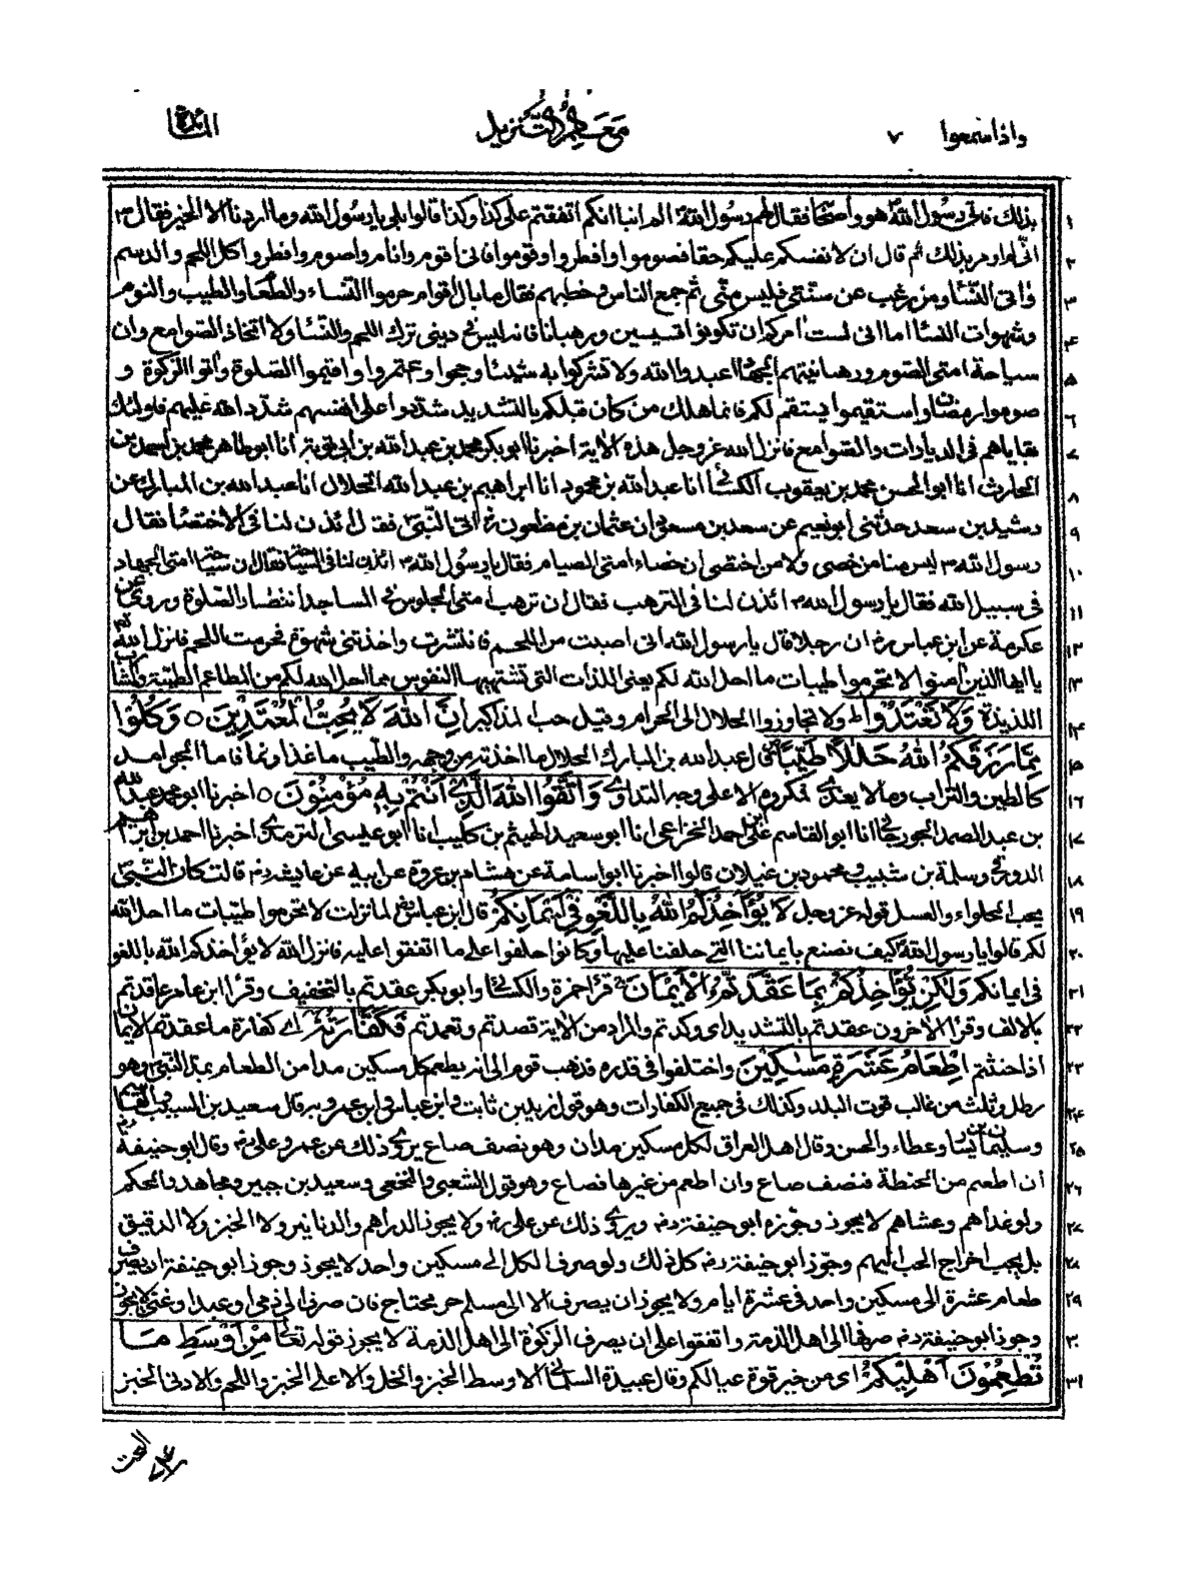 واذا سمعوا ٧ معالم التنزيل المائدة
بذلك فاتى رسول الله هو واصحابه فقال لهم رسول الله الم انبا انكم اتفقتم على كذا وكذا قالوا بلى يا رسول الله وما اردنا الا الخير فقال
انى لم اومر بذلك ثم قال ان لانفسكم عليكم حقا فصوموا وافطروا وقوموا فانى اقوم وانام واصوم وافطر واكل اللحم والدسم
واتى النساء ومن رغب عن سنتى فليس منى ثم جمع الناس وخطبهم فقال ما بال اقوام حرموا النساء والطعام والطيب والنوم
وشهوات النساء اما انى لست امركم ان تكونوا قسيسين ورهبانا فانه ليس فى دينى ترك اللحم والنساء ولا اتخاذ الصوامع وان
سياحة امتى الصوم ورهبانيتهم الجهاد اعبدوا الله ولا تشركوا به شيئا وحجوا واعتمروا واقيموا الصلوة واتوا الزكوة و
صوموا رمضان واستقيموا يستقم لكم فانما هلك من كان قبلكم بالتشديد شددوا على انفسهم فشدد الله عليهم فاولئك
بقاياهم فى الديارات والصوامع فانزل الله عز وجل هذه الاية اخبرنا ابو بكر محمد بن عبد الله بن ابى توبة انا ابو طاهر محمد بن احمد بن
الحارث انا ابو الحسن محمد بن يعقوب الكسائى انا عبد الله بن محمود انا ابراهيم بن عبد الله الخلال انا عبد الله بن المبارك عن
رشيد بن سعد حدثنى ابو نعيم عن سعد بن مسعود ان عثمان بن مظعون رض اتى النبى فقال ائذن لنا فى الاختصاء فقال
رسول الله ص ليس منا من خصى ولا من اختصى ان خصاء امتى الصيام فقال يا رسول الله ص ائذن لنا فى السياحة فقال ان سياحة امتى الجهاد
فى سبيل الله فقال يا رسول الله ص ائذن لنا فى الترهب فقال ان ترهب امتى الجلوس فى المساجد انتظار الصلوة وروى عن
عكرمة عن ابن عباس رض ان رجلا قال يا رسول الله انى اصبت من اللحم فانتشرت واخذتنى شهوة فحرمت اللحم فانزل الله
يا ايها الذين امنوا لا تحرموا طيبات ما احل الله لكم يعنى اللذات التى تشتهيها النفوس مما احل الله لكم من المطاعم الطيبة والمشارب
اللذيذة وَلَا تَعْتَدُوْا ولا تجاوزوا الحلال الى الحرام وقيل جب المذاكير اِنَّ اللّٰهَ لَا يُحِبُّ الْمُعْتَدِيْنَ ٥ وَكُلُوْا
مِمَّا رَزَقَكُمُ اللّٰهُ حَلٰلًا طَيِّبًا قال عبد الله بن المبارك الحلال ما اخذته من وجهه والطيب ما غذا ونما فاما الجوامد
كالطين والتراب وما لا يغذى فمكروه الا على وجه التداوى وَاتَّقُوا اللّٰهَ الَّذِيْ اَنْتُمْ بِهٖ مُؤْمِنُوْنَ ٥ اخبرنا ابو محمد عبد الله
بن عبد الصمد الجورجانى انا ابو القاسم على بن احمد الخزاعى انا ابو سعيد الهيثم بن كليب انا ابو عيسى الترمذى اخبرنا احمد بن ابراهيم
الدورقى وسلمة بن شبيب ومحمود بن غيلان قالوا اخبرنا ابو اسامة عن هشام بن عروة عن ابيه عن عايشه رض قالت كان النبى
يحب الحلواء والعسل قوله عز وجل لَا يُؤَاخِذُكُمُ اللّٰهُ بِاللَّغْوِ فِيْ اَيْمَانِكُمْ قال ابن عباس رض لما نزلت لا تحرموا طيبات ما احل الله
لكم قالوا يا رسول الله كيف نصنع بايماننا التى حلفنا عليها وكانوا حلفوا على ما اتفقوا عليه فانزل الله لا يؤاخذكم الله باللغو
فى ايمانكم وَلٰكِنْ يُّؤَاخِذُكُمْ بِمَا عَقَّدْتُّمُ الْاَيْمَانَ قرأ حمزة والكسائى وابو بكر عقدتم بالتخفيف وقرأ ابن عامر عاقدتم
بالالف وقرأ الاخرون عقدتم بالتشديد اى وكدتم والمراد من الاية قصدتم وتعمدتم فَكَفَّارَتُهٗ اى كفارة ما عقدتم الايمان
اذا حنثتم اِطْعَامُ عَشَرَةِ مَسٰكِيْنَ واختلفوا فى قدره فذهب قوم الى انه يطعم كل مسكين مدا من الطعام بمد النبى ص وهو
رطل وثلث من غالب قوت البلد وكذلك فى جميع الكفارات وهو قول زيد بن ثابت وابن عباس وابن عمر وبه قال سعيد بن المسيب والقاسم
وسليمان بن يسار وعطاء والحسن وقال اهل العراق لكل مسكين مدان وهو نصف صاع يروى ذلك عن عمر وعلى رض وقال ابو حنيفة
ان اطعم من الحنطة فنصف صاع وان اطعم من غيرها فصاع وهو قول الشعبى والنخعى وسعيد بن جبير ومجاهد والحكم
ولو غداهم وعشاهم لا يجوز وجوزه ابو حنيفة رض ويروى ذلك عن على رض ولا يجوز الدراهم والدنانير ولا الخبز ولا الدقيق
بل يجب اخراج الحب اليهم وجوز ابو حنيفة رض كل ذلك ولو صرف الكل الى مسكين واحد لا يجوز وجوز ابو حنيفة ان يصرف
طعام عشرة الى مسكين واحد فى عشرة ايام ولا يجوز ان يصرف الا الى مسلم حر محتاج فان صرف الى ذمى او عبد او غنى لا يجوز
وجوز ابو حنيفة رض صرفها الى اهل الذمة واتفقوا على ان يصرف الزكوة الى اهل الذمة لا يجوز قوله تعالى مِنْ اَوْسَطِ مَا
تُطْعِمُوْنَ اَهْلِيْكُمْ اى من خير قوة عيالكم وقال عبيدة السلمانى الاوسط الخبز والخل والاعلى الخبز واللحم والادنى الخبز